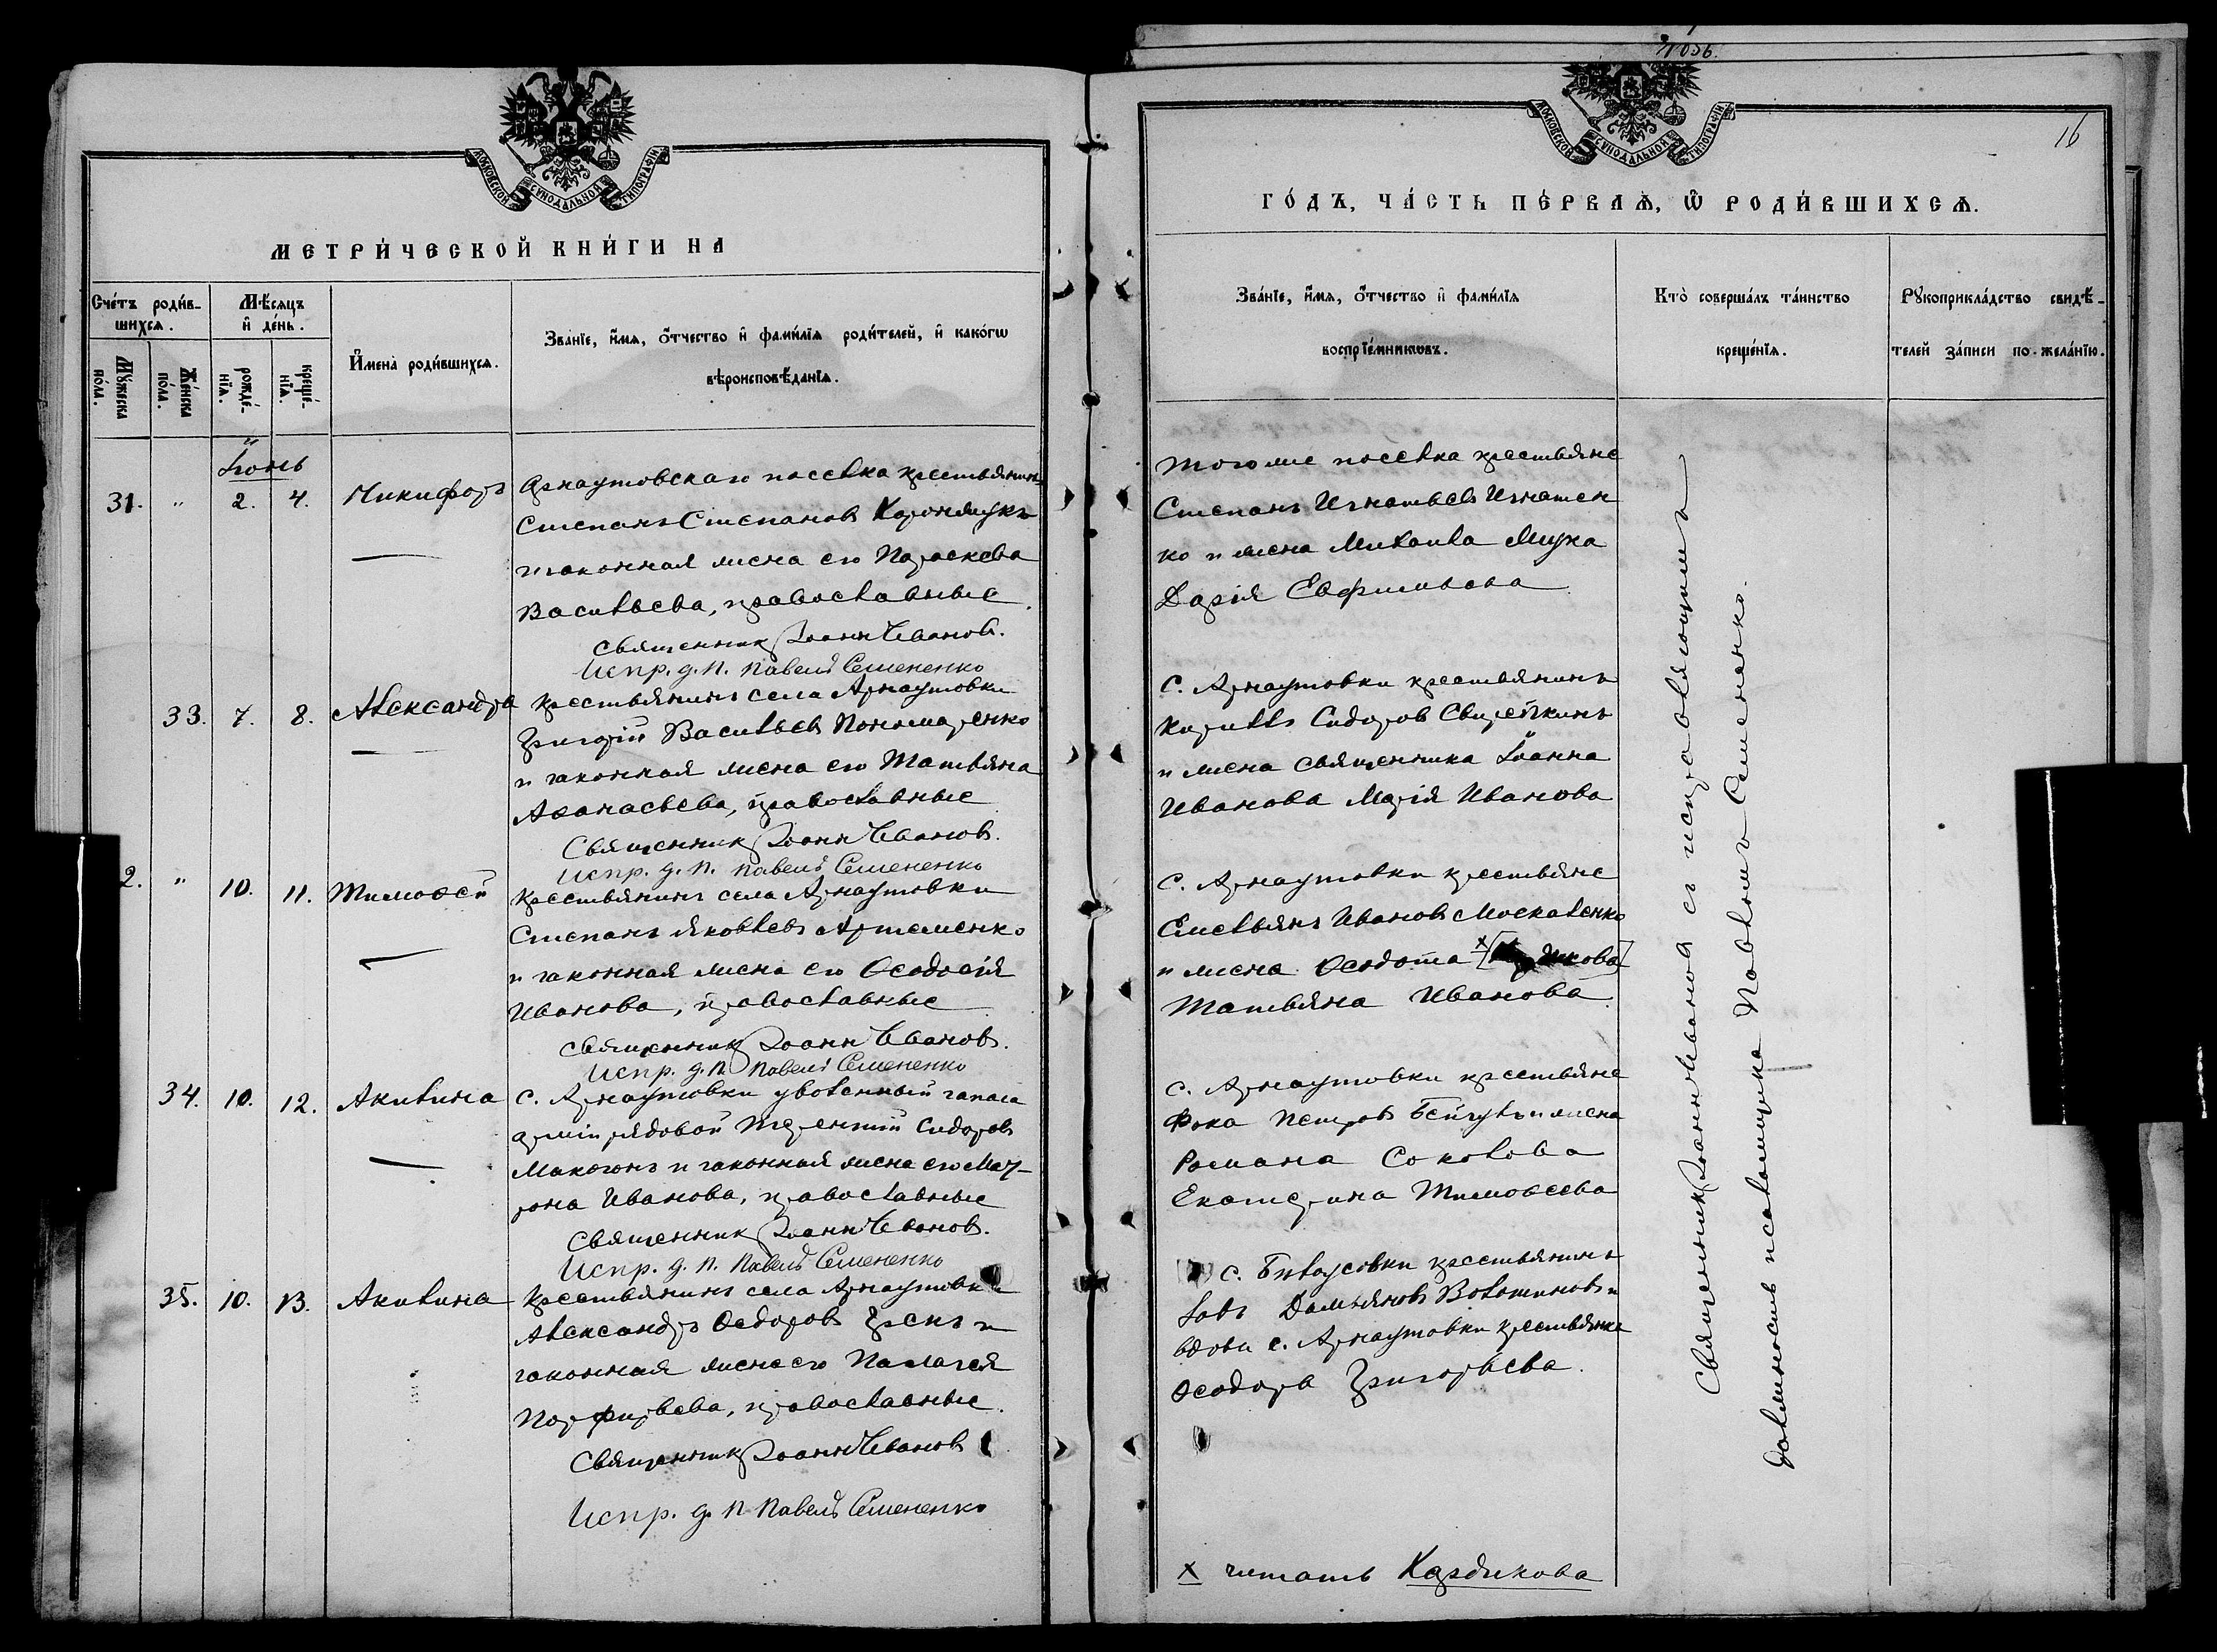 МОСКОВСКОЙ СѴНОДАЛЬНОЙ ТИПОГРАФІИ
МЕТРИ́ЧЕСКОЙ КНИ́ГИ НА
Сче́тъ роди́в-
шихсѧ.
Мѣ́сѧцъ
и҆ де́нь.
Мꙋ́жеска
по́ла.
Же́нска
по́ла.
рожде́-
нїѧ.
креще́-
нїѧ.
И҆мена̀ роди́вшихсѧ.
Зва́нїе, и҆́мѧ, ѻ҆́тчество и҆ фами́лїѧ роди́телей, и҆ како́гѡ
вѣроисповѣ́данїѧ.
Іюнь
31. " 2. 4. Никифоръ
Арнаутовскаго поселка крестьянинъ
Степанъ Степановъ
и законная жена его Параскева
Васильева, православные.
Священник Іоанн Иванов.
Испр. д. п. Павелъ Семененко
33. 7. 8. Александра
крестьянинъ села Арнаутовки
Григорій Васильевъ Пономаренко
и законная жена его Татьяна
Аѳанасьева, православные
Священник Іоанн Иванов.
Испр. д. п. Павелъ Семененко
2. " 10. 11. Тимоѳей
крестьянинъ села Арнаутовки
Степанъ Яковлевъ Артеменко
и законная жена его Ѳеодосія
Иванова, православные
Священник Іоанн Иванов.
Испр. д. п. Павелъ Семененко
34. 10. 12. Акилина
с. Арнаутовки уволенный запаса
арміи рядовой Терентій Сидоровъ
Макогонъ и законная жена его Мат-
рона Иванова, православные
Священник Іоанн Иванов.
Испр. д. п. Павелъ Семененко
35. 10. 13. Акилина
крестьянинъ села Арнаутовки
Александръ Ѳедоровъ Грекъ и
законная жена его Палагея
Порфирьева, православные.
Священник Іоанн Иванов
Испр. д. п. Павелъ Семененко
МОСКОВСКОЙ СѴНОДАЛЬНОЙ ТИПОГРАФІИ
16
ГО́ДЪ, ЧА́СТЬ ПЕ́РВАѦ, Ѡ҆ РОДИ́ВШИХСѦ.
Зва́нїе, и҆́мѧ, ѻ҆́тчество и҆ фами́лїѧ
воспрїе́мникѡвъ.
Кто̀ соверша́лъ та́инство
креще́нїѧ.
Рꙋкоприкла́дство свидѣ́-
телей за́писи по жела́нїю.
того же поселка крестьяне
Степанъ Игнатьевъ Игнатен
ко и жена Михаила Мука
Дарія Евфимова
с. Арнаутовки крестьянинъ
Кириллъ Сидоров Свирейкинъ
и жена священника Іоанна
Иванова Марія Иванова
с. Арнаутовки крестьяне
Емельянъ Ивановъ Москаленко
и жена Ѳеодота х
Татьяна Иванова.
с. Арнаутовки крестьяне
Фока Петровъ и жена
Романа Соколова
Екатерина Тимоѳеева
с. Билоусовки крестьянинъ
Іовъ Дамьяновъ Волотиновъ и
вдова с. Арнаутовки крестьянка
Ѳеодора Григорьева.
х читать Кардикова
Священник Іоанн Иванов съ исправляющимъ
должность псаломщика Павломъ Семененко.